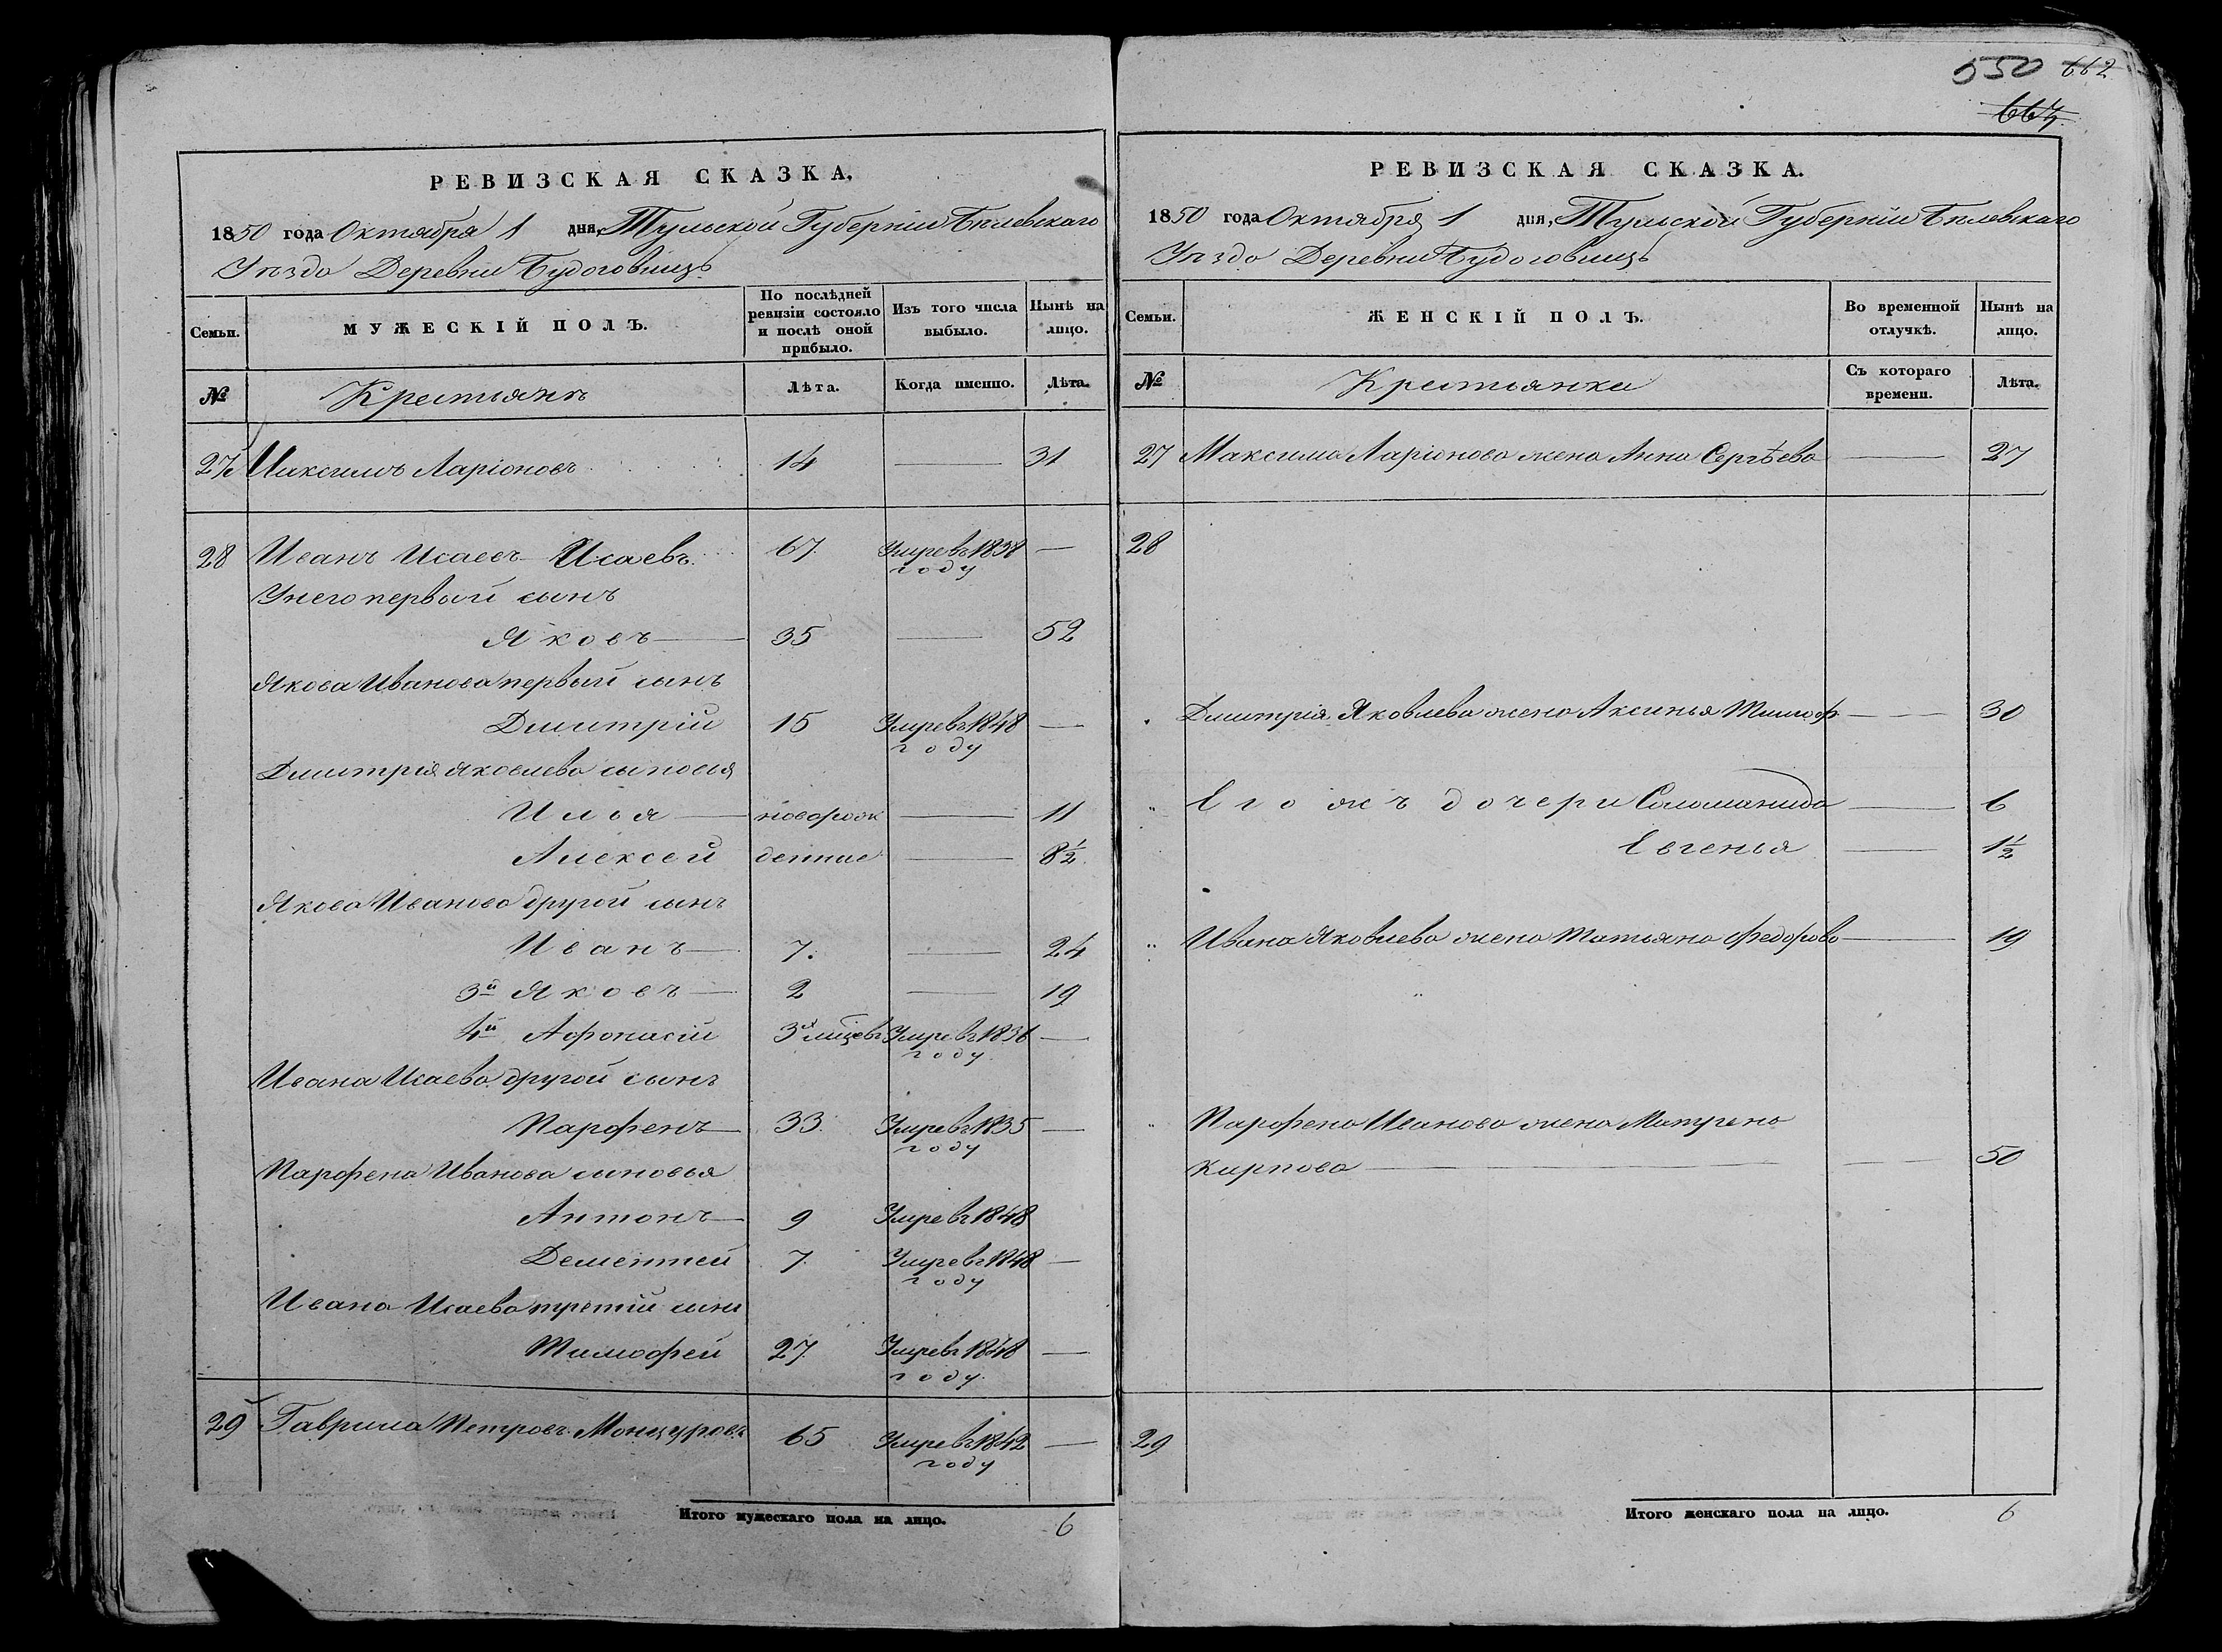 550 662
664
РЕВИЗСКАЯ СКАЗКА.
1850 года Октября 1 дня, Тульской Губерніи Бѣлевскаго
Уѣзда Деревни Будоговищъ
Семьи.
МУЖЕСКІЙ ПОЛЪ.
По послѣдней ревизіи состояло и послѣ оной прибыло.
Изъ того числа выбыло.
Нынѣ на лицо.
№ Крестьянъ Лѣта. Когда именно. Лѣта.
27 Максимъ Ларіоновъ 14 — 31
28 Иванъ Исаевъ Исаевъ 67 Умре въ 1838 —
году
У него первый сынъ
Яковъ — 35 — 52
Якова Иванова первый сынъ
Дмитрій 15 Умре въ 1848 —
году
Дмитрія Яковлева сыновья
Илья — новорож — 11
Алексей денные — 8½
Якова Иванова другой сынъ
Иванъ — 7. — 24
3й Яковъ — 2 — 19
4й Афонасій 3х мцевъ Умре въ 1836 —
году
Ивана Исаева другой сынъ
Парфенъ — 33 Умре въ 1835 —
году
Парфена Иванова сыновья
Антонъ — 9 Умре въ 1848
Дементей 7 Умре въ 1848 —
году
Ивана Исаева третій сынъ
Тимофей 27 Умре въ 1848 —
году
29 Гаврила Петровъ 65 Умре въ 1842 —
году
Итого мужескаго пола на лицо. 6
РЕВИЗСКАЯ СКАЗКА.
1850 года Октября 1 дня, Тульской Губерніи Бѣлевскаго
Уѣзда Деревни Будоговищъ
Семьи.
ЖЕНСКІЙ ПОЛЪ.
Во временной отлучкѣ.
Нынѣ на лицо.
№ Крестьянки Съ котораго времени. Лѣта.
27 Максима Ларіонова жена Анна Сергѣева — 27
28
Дмитрія Яковлева жена Аксинья Тимоф — 30
" Его жъ дочери Соломанида — 6
Евгенья — 1½
" Ивана Яковлева жена Татьяна Федорова — 19
" Парфена Иванова жена Матрена
Карпова — 50
29
Итого женскаго пола на лицо. 6